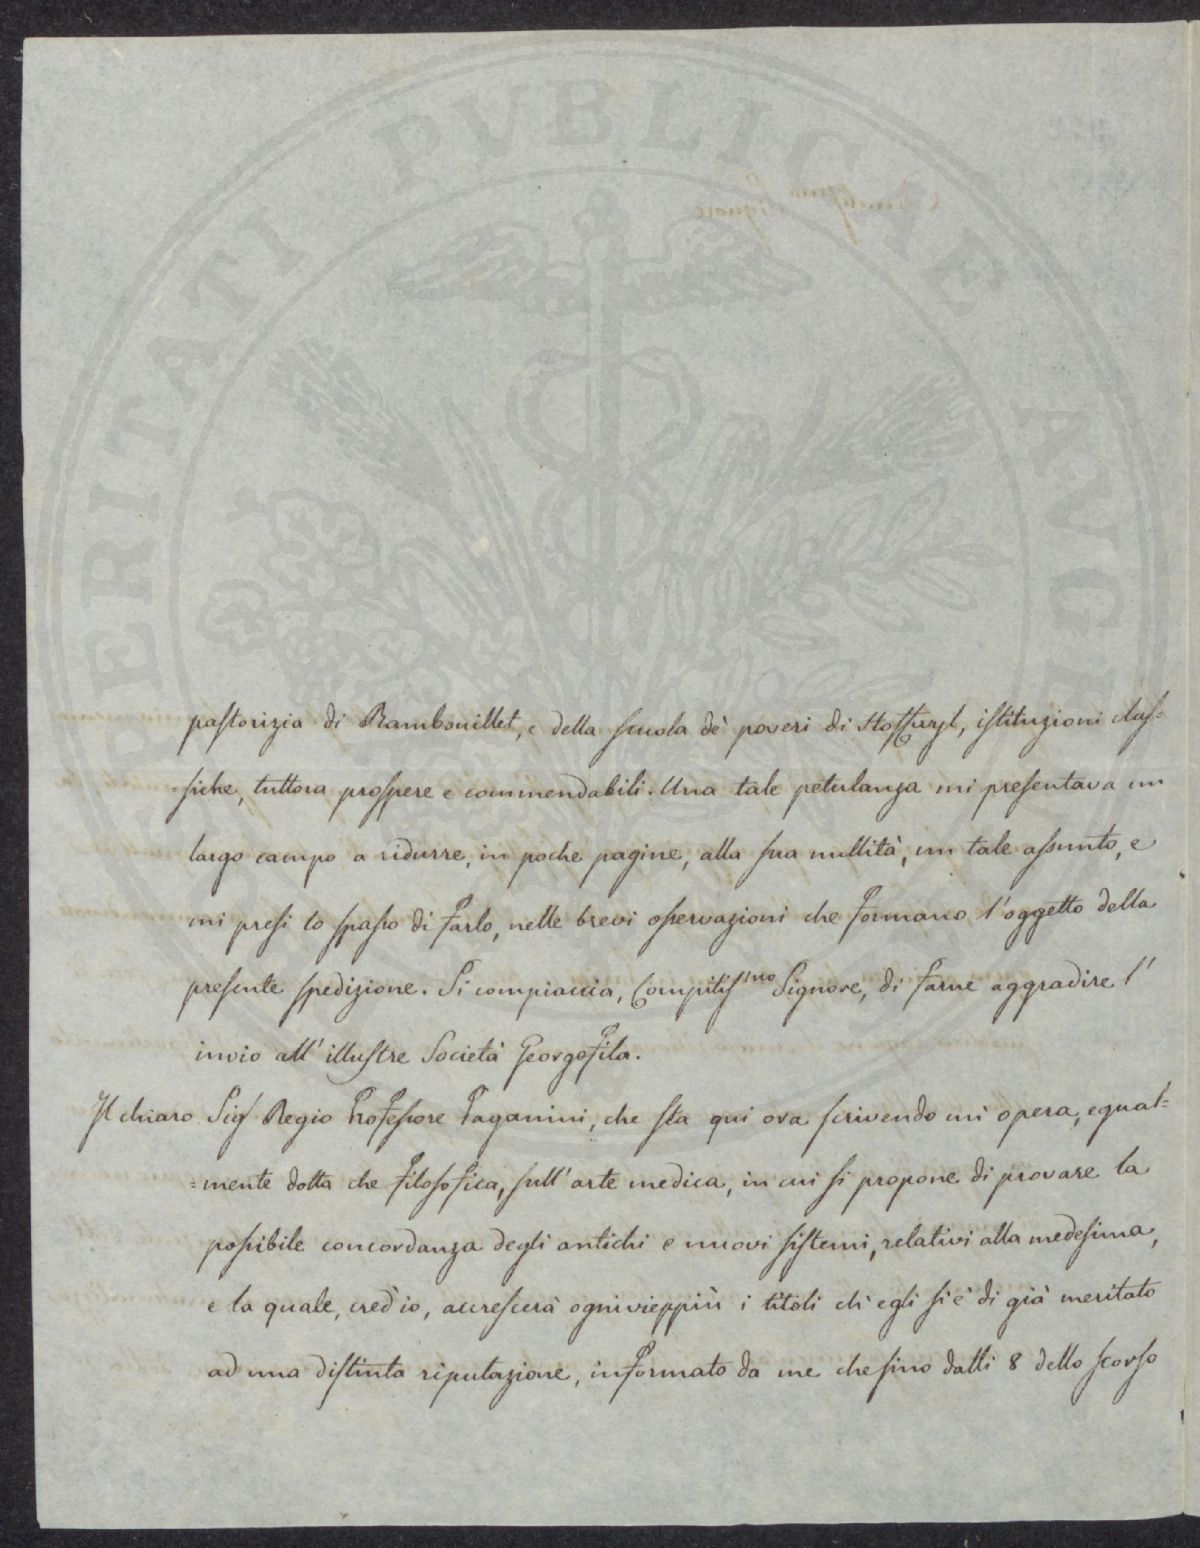 PROSPERITATI PVBLICAE AVGENDAE
pastorizia di Rambouillet, e della scuola de' poveri di Hoffwyl, istituzioni clas=
siche, tuttora prospere e commendabili. Una tale petulanza mi presentava un
largo campo a ridurre, in poche pagine, alla sua nullità, un tale assunto, e
mi presi lo spasso di farlo, nelle brevi osservazioni che formano l'oggetto della
presente spedizione. Si compiaccia, Compitissimo Signore, di farne aggradire l'
invio all'illustre Società Georgofila.
Il chiaro Sigr Regio Professore Paganini, che sta qui ora scrivendo un' opera, egual=
=mente dotta che filosofica, sull'arte medica, in cui si propone di provare la
possibile concordanza degli antichi e nuovi sistemi, relativi alla medesima,
e la quale, cred'io, accrescerà ogni vieppiù i titoli ch'egli si è di già meritato
ad una distinta riputazione, informato da me che sino dalli 8 dello scorso